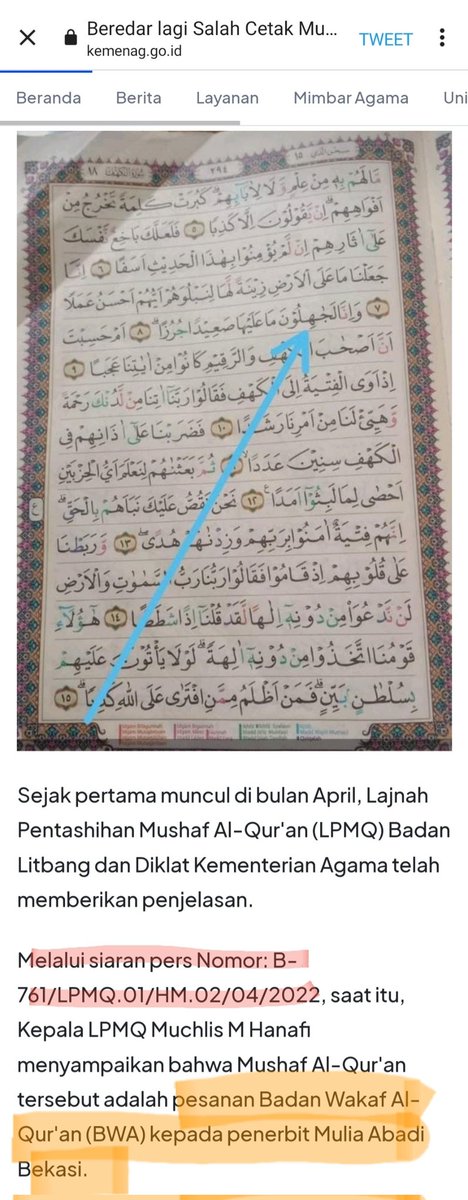 Beredar lagi Salah Cetak Mu...
kemenag.go.id
TWEET
Beranda Berita Layanan Mimbar Agama Uni
سبحن الذي ١٥ ٢٩٤ سورة الكهف ١٨
مَا لَهُمْ بِهٖ مِنْ عِلْمٍ وَّلَا لِاٰبَاۤىِٕهِمْۗ كَبُرَتْ كَلِمَةً تَخْرُجُ مِنْ
اَفْوَاهِهِمْۗ اِنْ يَّقُوْلُوْنَ اِلَّا كَذِبًا ٥ فَلَعَلَّكَ بَاخِعٌ نَّفْسَكَ
عَلٰٓى اٰثَارِهِمْ اِنْ لَّمْ يُؤْمِنُوْا بِهٰذَا الْحَدِيْثِ اَسَفًا ٦ اِنَّا
جَعَلْنَا مَا عَلَى الْاَرْضِ زِيْنَةً لَّهَا لِنَبْلُوَهُمْ اَيُّهُمْ اَحْسَنُ عَمَلًا
٧ وَاِنَّا لَجٰهِلُوْنَ مَا عَلَيْهَا صَعِيْدًا جُرُزًاۗ ٨ اَمْ حَسِبْتَ
اَنَّ اَصْحٰبَ وَالرَّقِيْمِ كَانُوْا مِنْ اٰيٰتِنَا عَجَبًا ٩
اِذْ اَوَى الْفِتْيَةُ اِلَى الْكَهْفِ فَقَالُوْا رَبَّنَآ اٰتِنَا مِنْ لَّدُنْكَ رَحْمَةً
وَّهَيِّئْ لَنَا مِنْ اَمْرِنَا رَشَدًا ١٠ فَضَرَبْنَا عَلٰٓى اٰذَانِهِمْ فِى
الْكَهْفِ سِنِيْنَ عَدَدًاۙ ثُمَّ بَعَثْنٰهُمْ لِنَعْلَمَ اَيُّ الْحِزْبَيْنِ
اَحْصٰى لِمَا لَبِثُوْٓا اَمَدًا ١٢ نَحْنُ نَقُصُّ عَلَيْكَ نَبَاَهُمْ بِالْحَقِّۗ
اِنَّهُمْ فِتْيَةٌ اٰمَنُوْا بِرَبِّهِمْ وَزِدْنٰهُمْ هُدًىۖ ١٣ وَّرَبَطْنَا
عَلٰى قُلُوْبِهِمْ اِذْ قَامُوْا فَقَالُوْا رَبُّنَا رَبُّ السَّمٰوٰتِ وَالْاَرْضِ
لَنْ نَّدْعُوَا۟ مِنْ دُوْنِهٖٓ اِلٰهًا لَّقَدْ قُلْنَآ اِذًا شَطَطًا ١٤ هٰٓؤُلَاۤءِ
قَوْمُنَا اتَّخَذُوْا مِنْ دُوْنِهٖٓ اٰلِهَةًۗ لَوْلَا يَأْتُوْنَ عَلَيْهِمْ
بِسُلْطٰنٍۢ بَيِّنٍۗ فَمَنْ اَظْلَمُ مِمَّنِ افْتَرٰى عَلَى اللّٰهِ كَذِبًاۗ ١٥
Sejak pertama muncul di bulan April, Lajnah
Pentashihan Mushaf Al-Qur'an (LPMQ) Badan
Litbang dan Diklat Kementerian Agama telah
memberikan penjelasan.
Melalui siaran pers Nomor: B-
761/LPMQ.01/HM.02/04/2022, saat itu,
Kepala LPMQ Muchlis M Hanafi
menyampaikan bahwa Mushaf Al-Qur'an
tersebut adalah pesanan Badan Wakaf Al-
Qur'an (BWA) kepada penerbit Mulia Abadi
Bekasi.